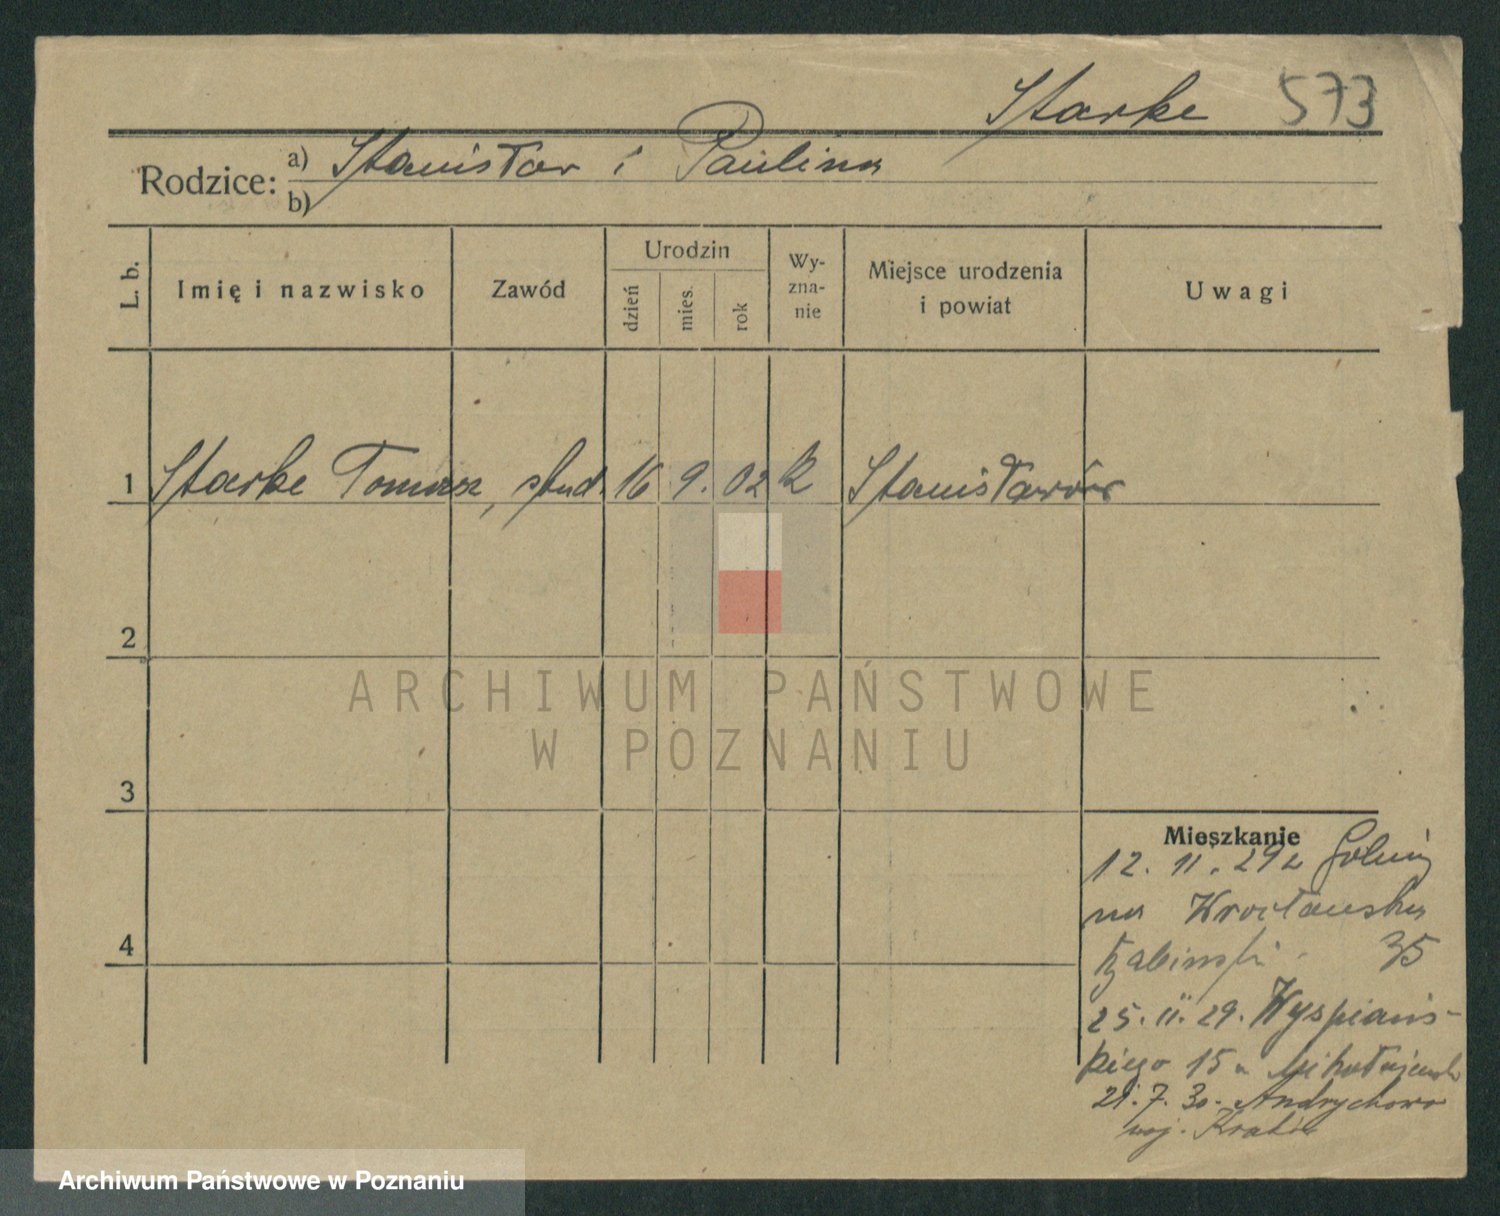 Starke 573
Rodzice: a) Stanisław i Paulina
b)
L. b. Imię i nazwisko Zawód Urodzin dzień mies. rok Wy-zna-nie Miejsce urodzenia i powiat Uwagi
1 Starke Tomasz, stud. 16 9. 02 k Stanisławów
2
ARCHIWUM PAŃSTWOWE
W POZNANIU
3
Mieszkanie
12. 11. 29 z
na Wrocławska
4
35
25. 11. 29. Wyspiańs-
kiego 15
21. 7. 30. Andrychowa
woj. Kraków
Archiwum Państwowe w Poznaniu